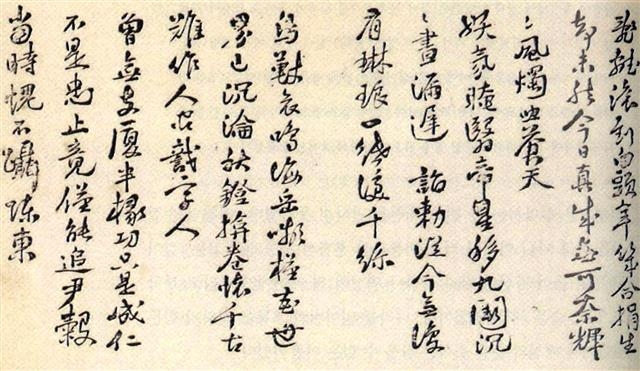 亂離滾到白頭年幾合捐生
却未然今日真成無可奈輝
〻風燭照蒼天
妖氛晻翳帝星移九闕沉
〻晝漏遲 詔勅從今無復
有琳琅一紙淚千絲
鳥獸哀鳴海岳嚬槿花世
界已沉淪秋鐙揜卷懷千古
難作人間識字人
曾無支厦半椽功只是成仁
不是忠止竟僅能追尹穀
當時愧不躡陳東